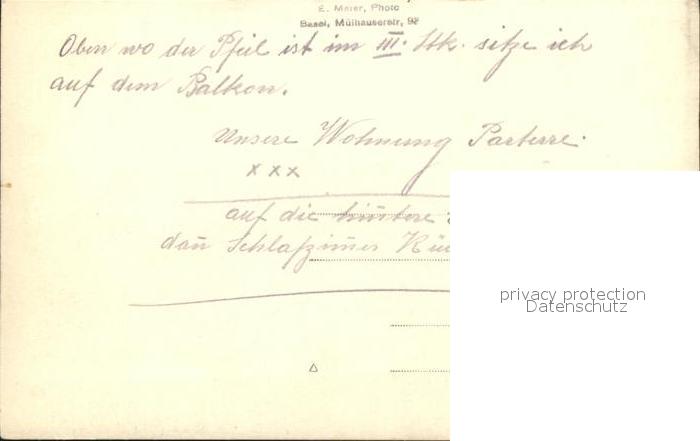 E. Meier, Photo
Basel, Mülhauserstr, 92
Oben wo der Pfeil ist im III. Stk. sitze ich
auf dem Balkon.
Unsere Wohnung Parterre.
x x x
auf die hintere
dan̄ Schlafzim̄er
privacy protection
Datenschutz